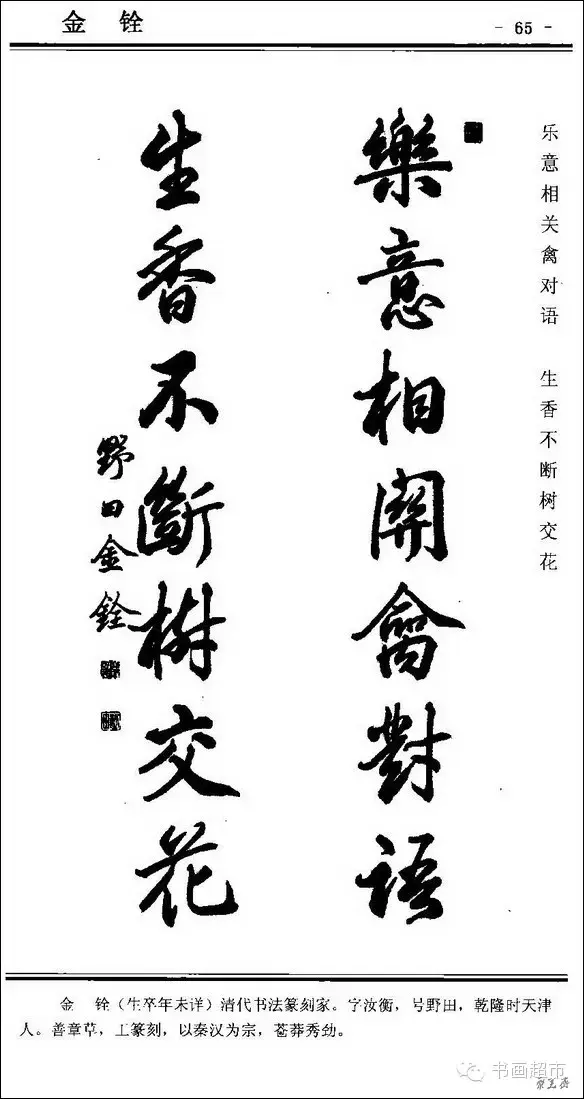 金 铨
- 65 -
乐意相关禽对语 生香不断树交花
樂意相關禽對語
生香不斷樹交花
野田金銓
金 铨（生卒年未详）清代书法篆刻家。字汝衡，号野田，乾隆时天津
人。善章草，工篆刻，以秦汉为宗，苍莽秀劲。
书画超市